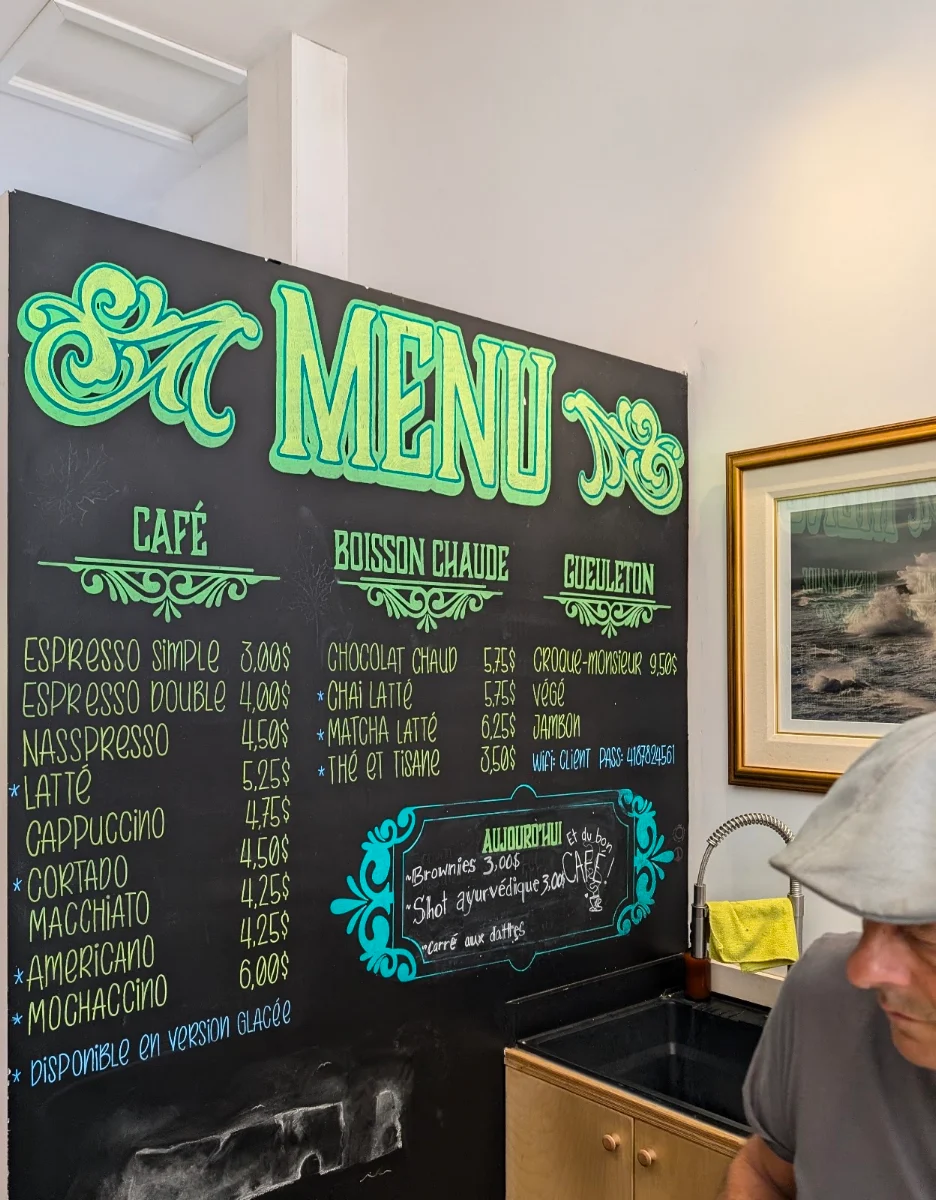 MENU
CAFÉ
ESPRESSO SIMPLE 3,00$
ESPRESSO DOUBLE 4,00$
NASSPRESSO 4,50$
* LATTÉ 5,25$
CAPPUCCINO 4,75$
* CORTADO 4,50$
MACCHIATO 4,25$
* AMERICANO 4,25$
* MOCHACCINO 6,00$
* DISPONIBLE EN VERSION GLACÉE
BOISSON CHAUDE
CHOCOLAT CHAUD 5,75$
* CHAI LATTÉ 5,75$
* MATCHA LATTÉ 6,25$
* THÉ ET TISANE 3,50$
GUEULETON
CROQUE-MONSIEUR 9,50$
VÉGÉ
JAMBON
WIFI: CLIENT PASS: 4187824561
AUJOURD'HUI
~Brownies 3,00$
~Shot ayurvédiique 3,00$
~Carré aux dattes
Et du bon
CAFÉ!